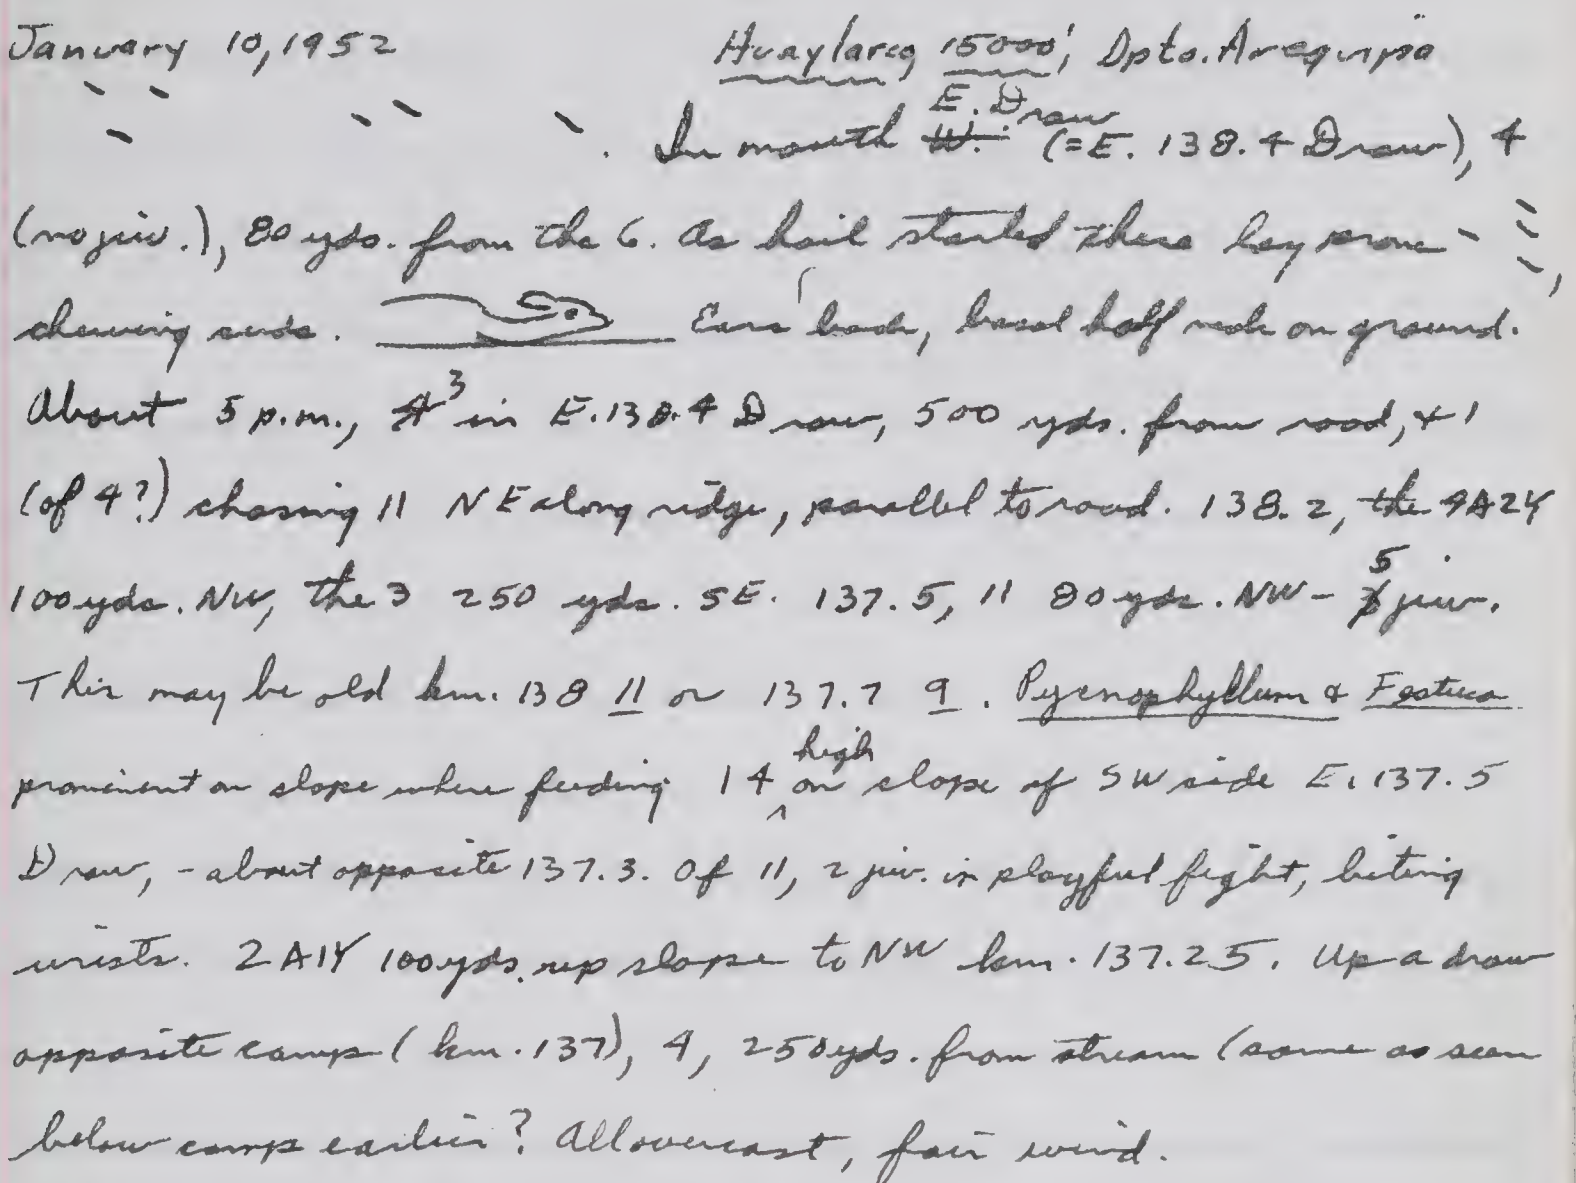 January 10, 1952 Huaylarco, 15000', Dpto. Arequipa
E. Draw
. In mouth W. (=E. 138.4 Draw), 4
(no juv.), 80 yds. from the 6. As hail started these lay prone -
chewing cuds. Ears back, basal half neck on ground.
About 5 p.m., 4 3 in E. 138.4 Draw, 500 yds. from road, & 1
(of 4?) chasing 11 NE along ridge, parallel to road. 138.2, the 4A2Y
100 yds. NW, the 3 250 yds. SE. 137.5, 11 80 yds. NW - 5 juv.
This may be old km. 138 11 or 137.7 9. Pycnophyllum & Festuca
prominent on slope where feeding. 14 high on slope of SW side E. 137.5
Draw, - about opposite 137.3. Of 11, 2 juv. in playful fight, biting
wrists. 2A1Y 100 yds. up slope to NW km. 137.25. Up a draw
opposite camp (km. 137), 4, 250 yds. from stream (same as seen
below camp earlier? All overcast, fair wind.